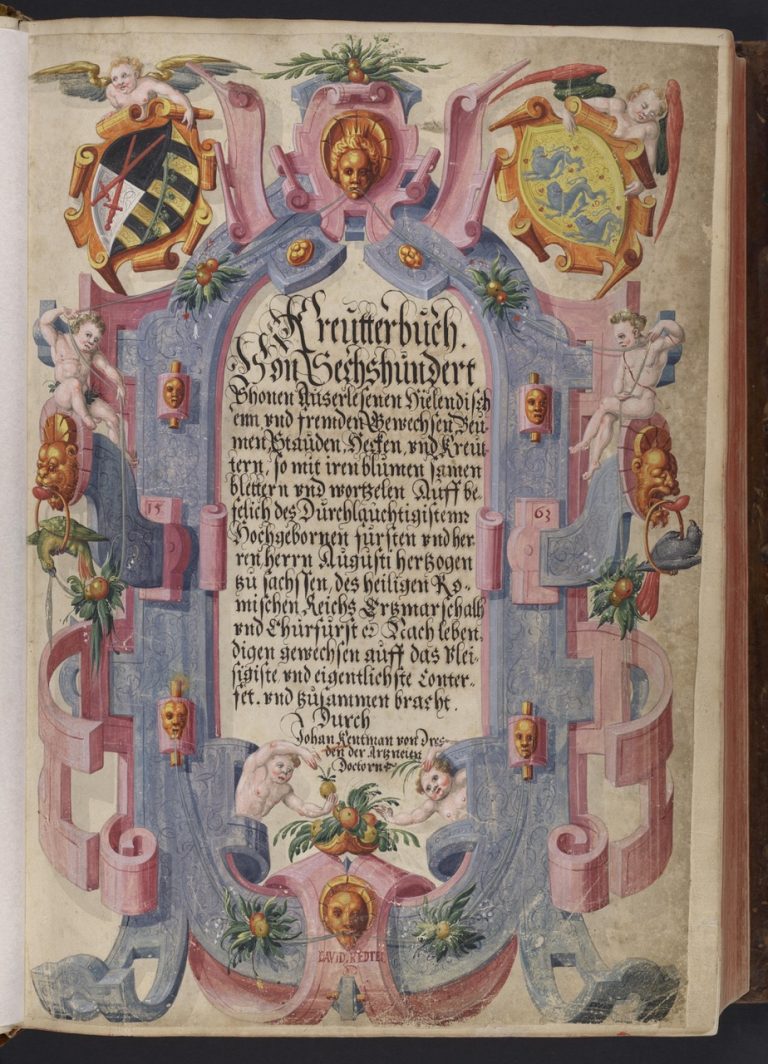 Kreutterbuch.
Von Sechshundert
Schonen Auserlesenen Hielendisch
enn vnd fremden Gewechsen Beu-
men Stauden, Hecken, vnd Kreut
tern, so mit iren blumen samen
blettern vnd wortzelen Auff be-
felich des Durchlauchtigistenn
Hochgebornen fursten vnd her
ren herrn Augusti hertzogen
zu sachssen, des heiligen Ro-
mischen Reichs Ertzmarschalh
vnd Churfurst ꝛc Nach leben,
digen gewechsen auff das vlei-
sigiste vnd eigentlichste Conter-
fet. vnd zusammen bracht.
Durch
Johan Kentman von Dres-
den der Artzneien
Doctorn
15 63
DAVID. REDTEL